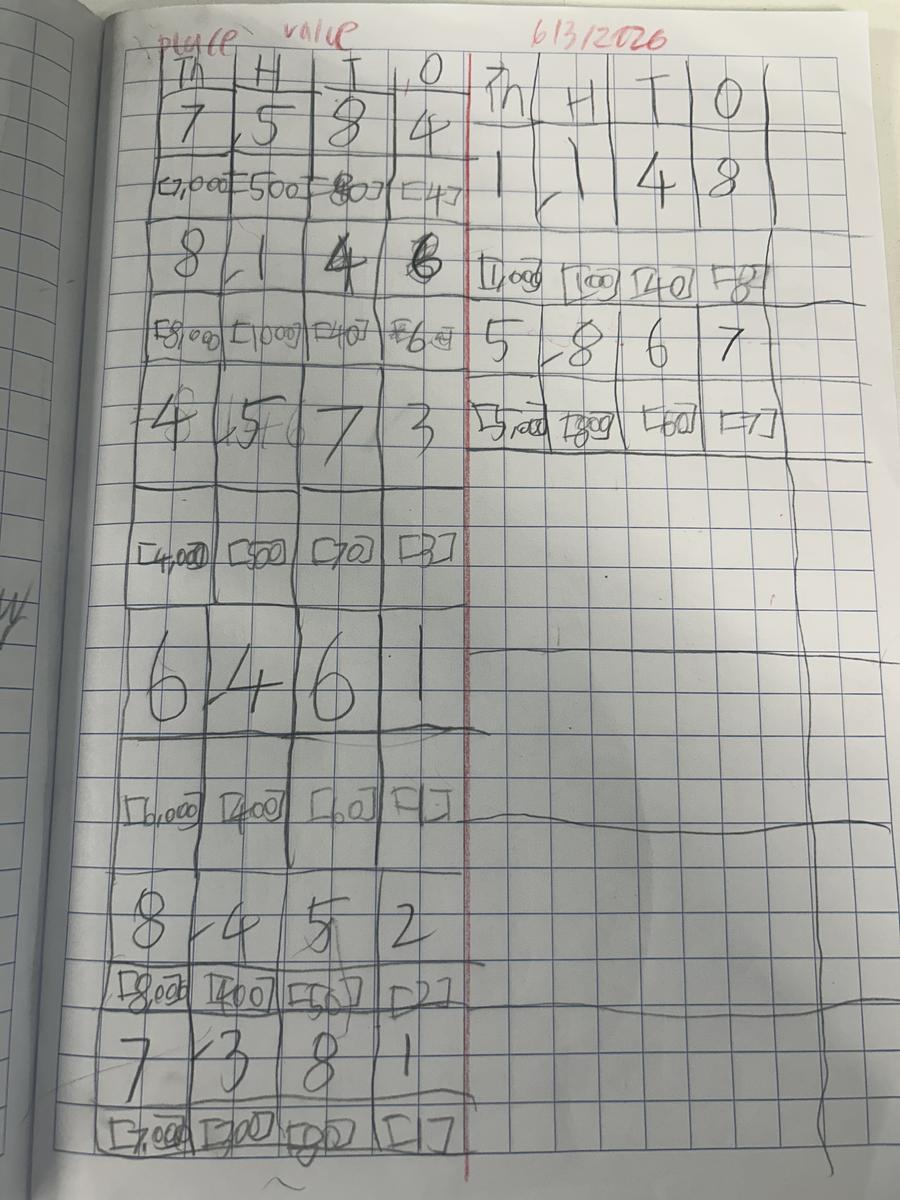 place value 6/3/2026
Th H T O
7,584
[7,000] [500] [80] [4]
8,146
[8,000] [1,000] [40] [6]
4,573
[4,000] [500] [70] [3]
6,461
[6,000] [400] [60] [1]
8,452
[8,000] [400] [50] [2]
7,381
[7,000] [300] [80] [1]
Th H T O
1,148
[1,000] [100] [40] [8]
5,867
[5,000] [800] [60] [7]